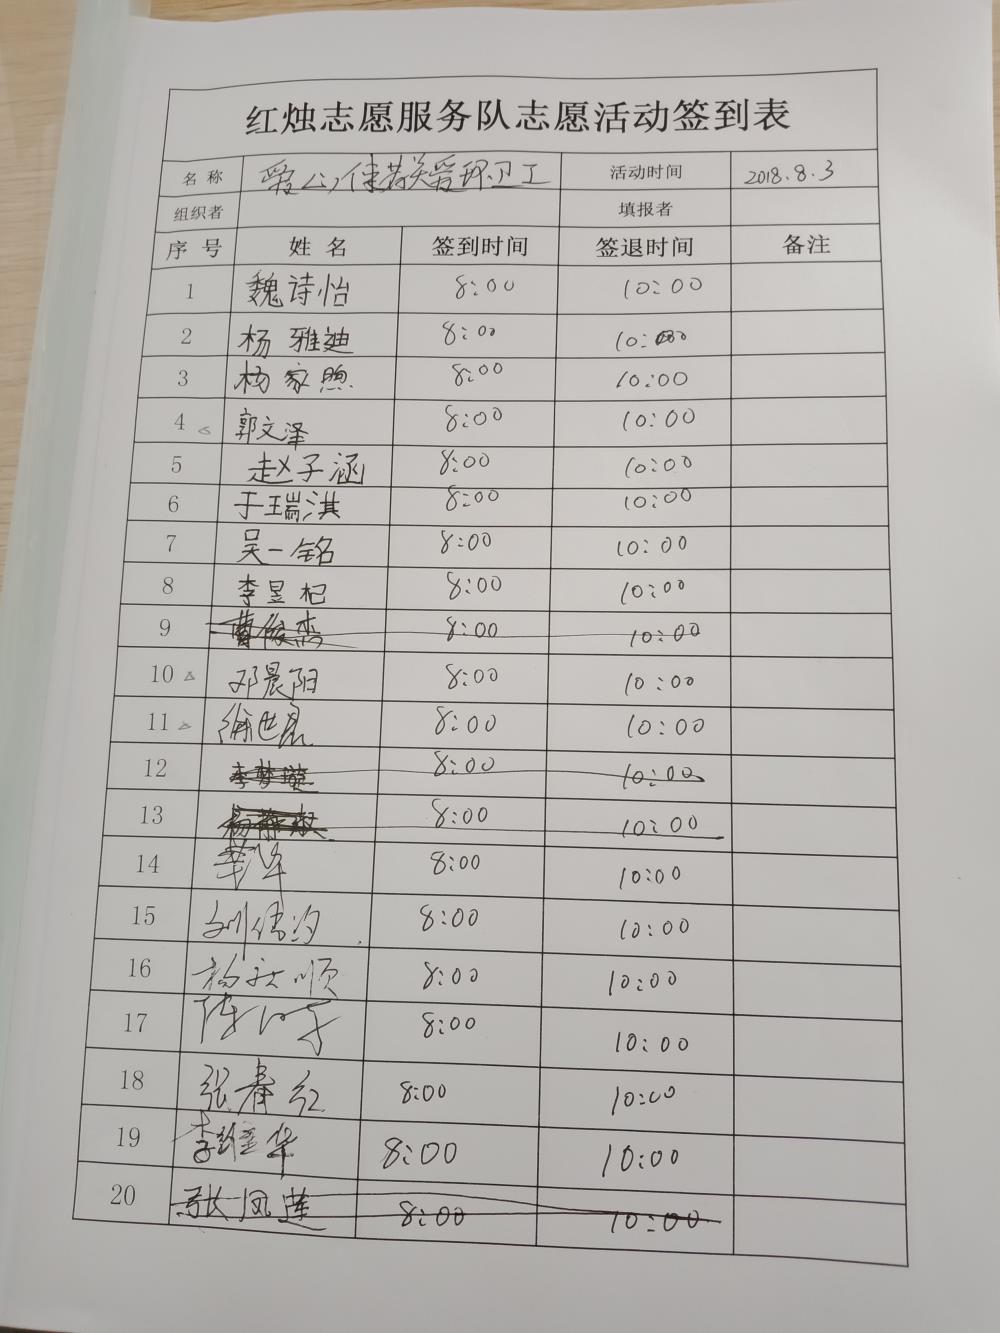 红烛志愿服务队志愿活动签到表
名 称 爱心传递关爱环卫工 活动时间 2018.8.3
组织者 填报者
序 号 姓 名 签到时间 签退时间 备注
1 魏诗怡 8:00 10:00
2 杨雅迪 8:00 10:00
3 杨家煦 8:00 10:00
4 郭文泽 8:00 10:00
5 赵子涵 8:00 10:00
6 于瑞淇 8:00 10:00
7 吴一铭 8:00 10:00
8 李昱杞 8:00 10:00
9 8:00 10:00
10 邓晨阳 8:00 10:00
11 徐世 8:00 10:00
12 李梦璇 8:00 10:00
13 杨 8:00 10:00
14 8:00 10:00
15 刘 8:00 10:00
16 杨 顺 8:00 10:00
17 陈 8:00 10:00
18 张春红 8:00 10:00
19 李维华 8:00 10:00
20 张凤莲 8:00 10:00